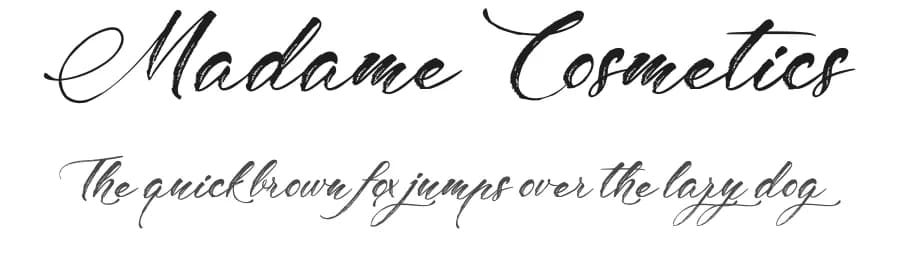 Madame Cosmetics
The quick brown fox jumps over the lazy dog